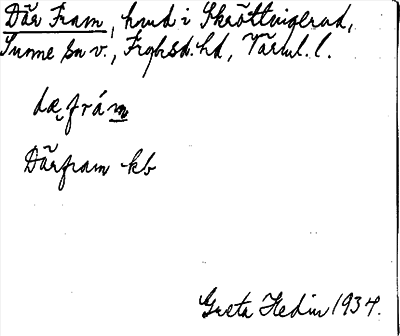 Där Fram, hmd i Skröttvigerud,
Sunne sn v., Fryksd. hd, Värml. l.
dæ̨ frám
Därfram kb
Greta Hedin 1934.